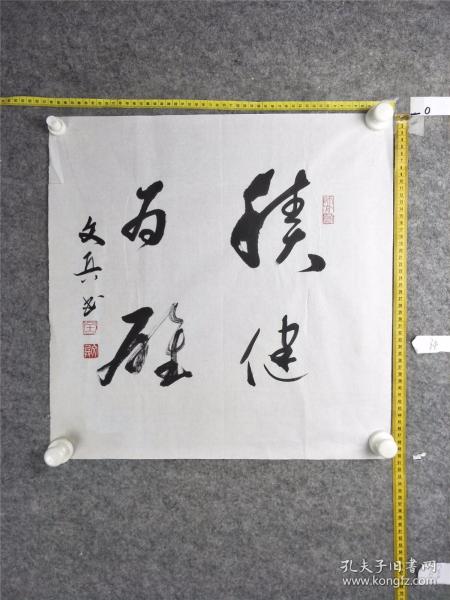 積健
为雄
文兵书
0
孔夫子旧书网
www.kongfz.com